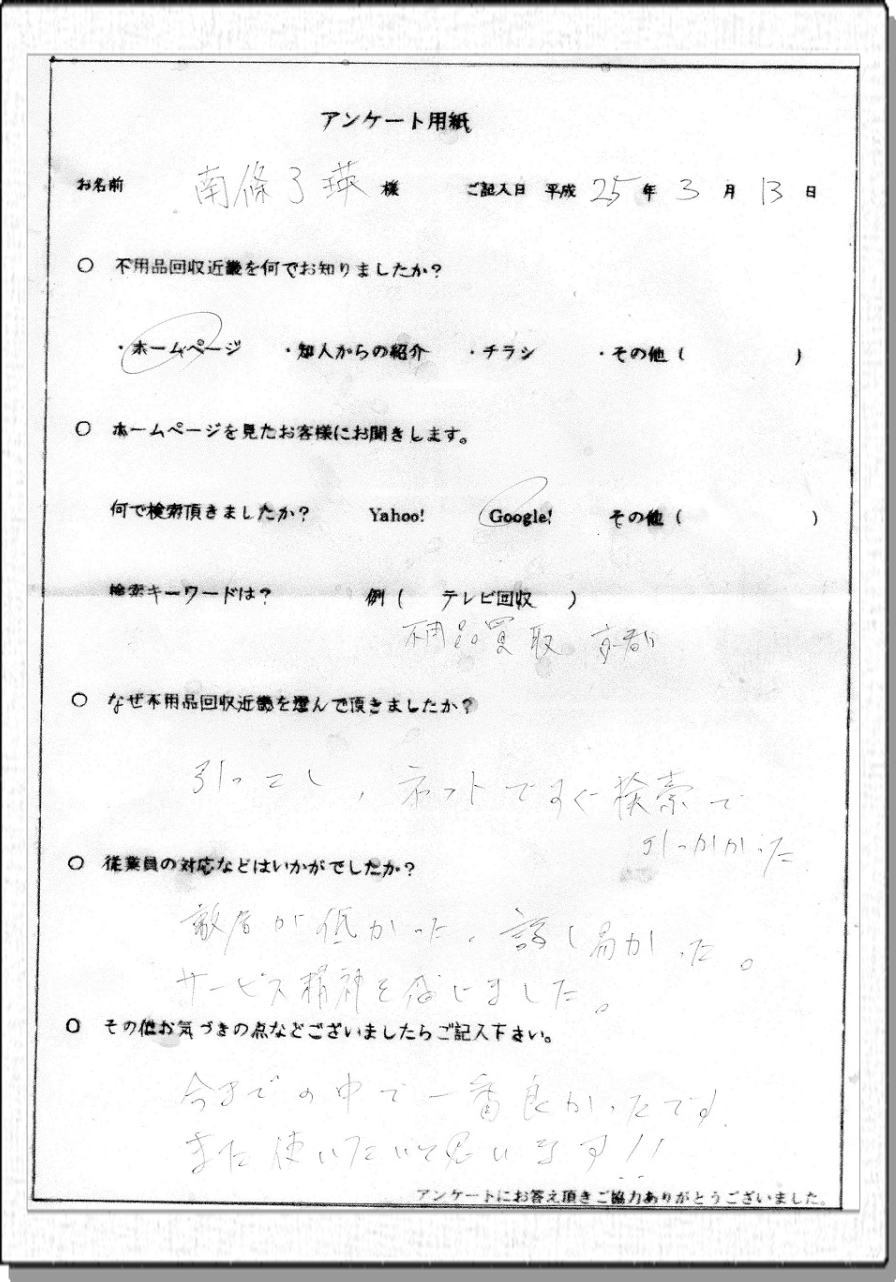 アンケート用紙
お名前 南條了瑛 様 ご記入日 平成 25 年 3 月 13 日
○ 不用品回収近畿を何でお知りましたか?
・ホームページ ・知人からの紹介 ・チラシ ・その他 ( )
○ ホームページを見たお客様にお聞きします。
何で検索頂きましたか? Yahoo! Google! その他 ( )
検索キーワードは? 例 ( テレビ回収 )
不用品買取 京都
○ なぜ不用品回収近畿を選んで頂きましたか?
引っこし、ネットですぐ検索で
引っかかった
○ 従業員の対応などはいかがでしたか?
敷居が低かった、話し易かった。
サービス精神を感じました。
○ その他お気づきの点などございましたらご記入下さい。
今までの中で一番良かったです
また使いたいと思います!!
アンケートにお答え頂きご協力ありがとうございました。